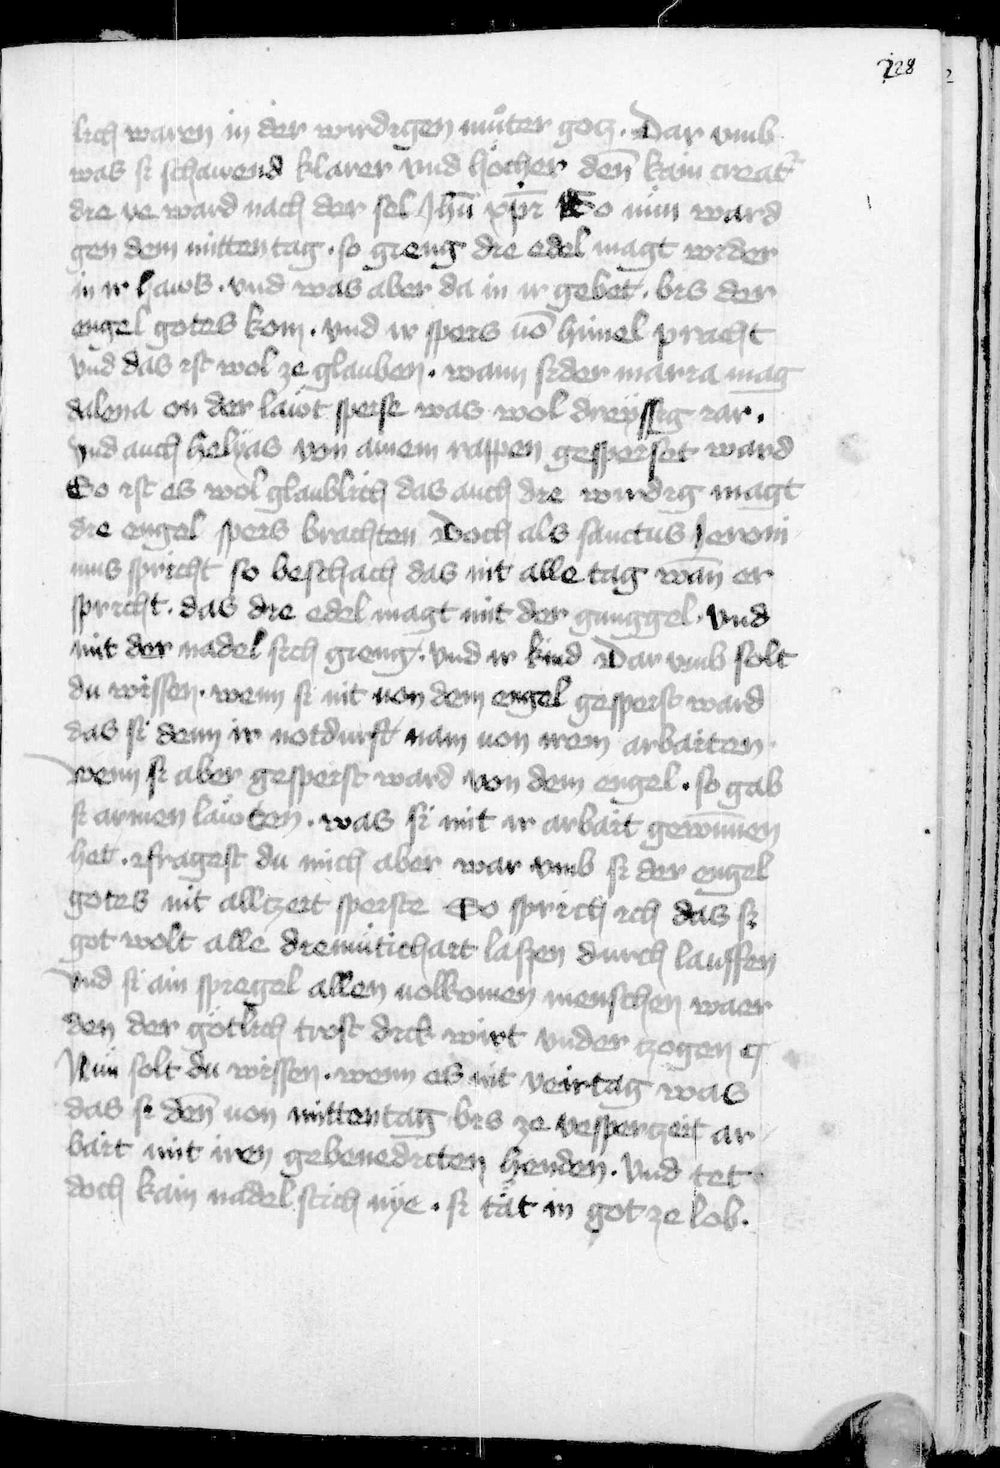 228
lich waren in der wirdigen muͦter gocz. Dar vmb
was si schawend klarer vnd hocher den̄ kain creat᷑
die ye ward nach der sel Jhū xp̄i So nŭn ward
gen dem mitten tag. so gieng die edel magt wider
in ir haws. vnd was aber da in ir gebet. bis der
engel gotes kom. vnd ir speis vō himel pracht
vnd das ist wol ze glauben. wann sider maria mag
dalena on der läwt speise was wol dreÿssig iar.
vnd auch helÿas von ainem rappen gespeiset ward
So ist es wol glaublich das auch die wirdig magt
die engel speis brachten Doch als sanctus Jeroni
mus spricht so beschach das nit alle tag wān er
spricht. das die edel magt mit der gunggel. vnd
mit der nadel sich gieng. vnd ir kind Dar vmb solt
du wissen. wenn si nit von dem engel gespeist ward
das si denn ir notdurft nam von irem arbaiten.
wenn si aber gespeist ward von dem engel. so gab
si armen läwten. was si mit ir arbait gewūnen
het. fragest du mich aber war vmb si der engel
gotes nit alltzeit speiste So sprich ich das si
got wolt alle diemütichait laszen durch lauffen
vnd si ain spiegel allen volkomen menschen waer
den der götlich trost dick wirt vnder tzogen
Nun solt du wissen. wenn es nit veirtag was
das si den̄ von mittentag bis ze vespertzeit ar
bait mit iren gebenedicten henden. vnd tet
doch kain nadel stich nÿe. si tät in got ze lob.